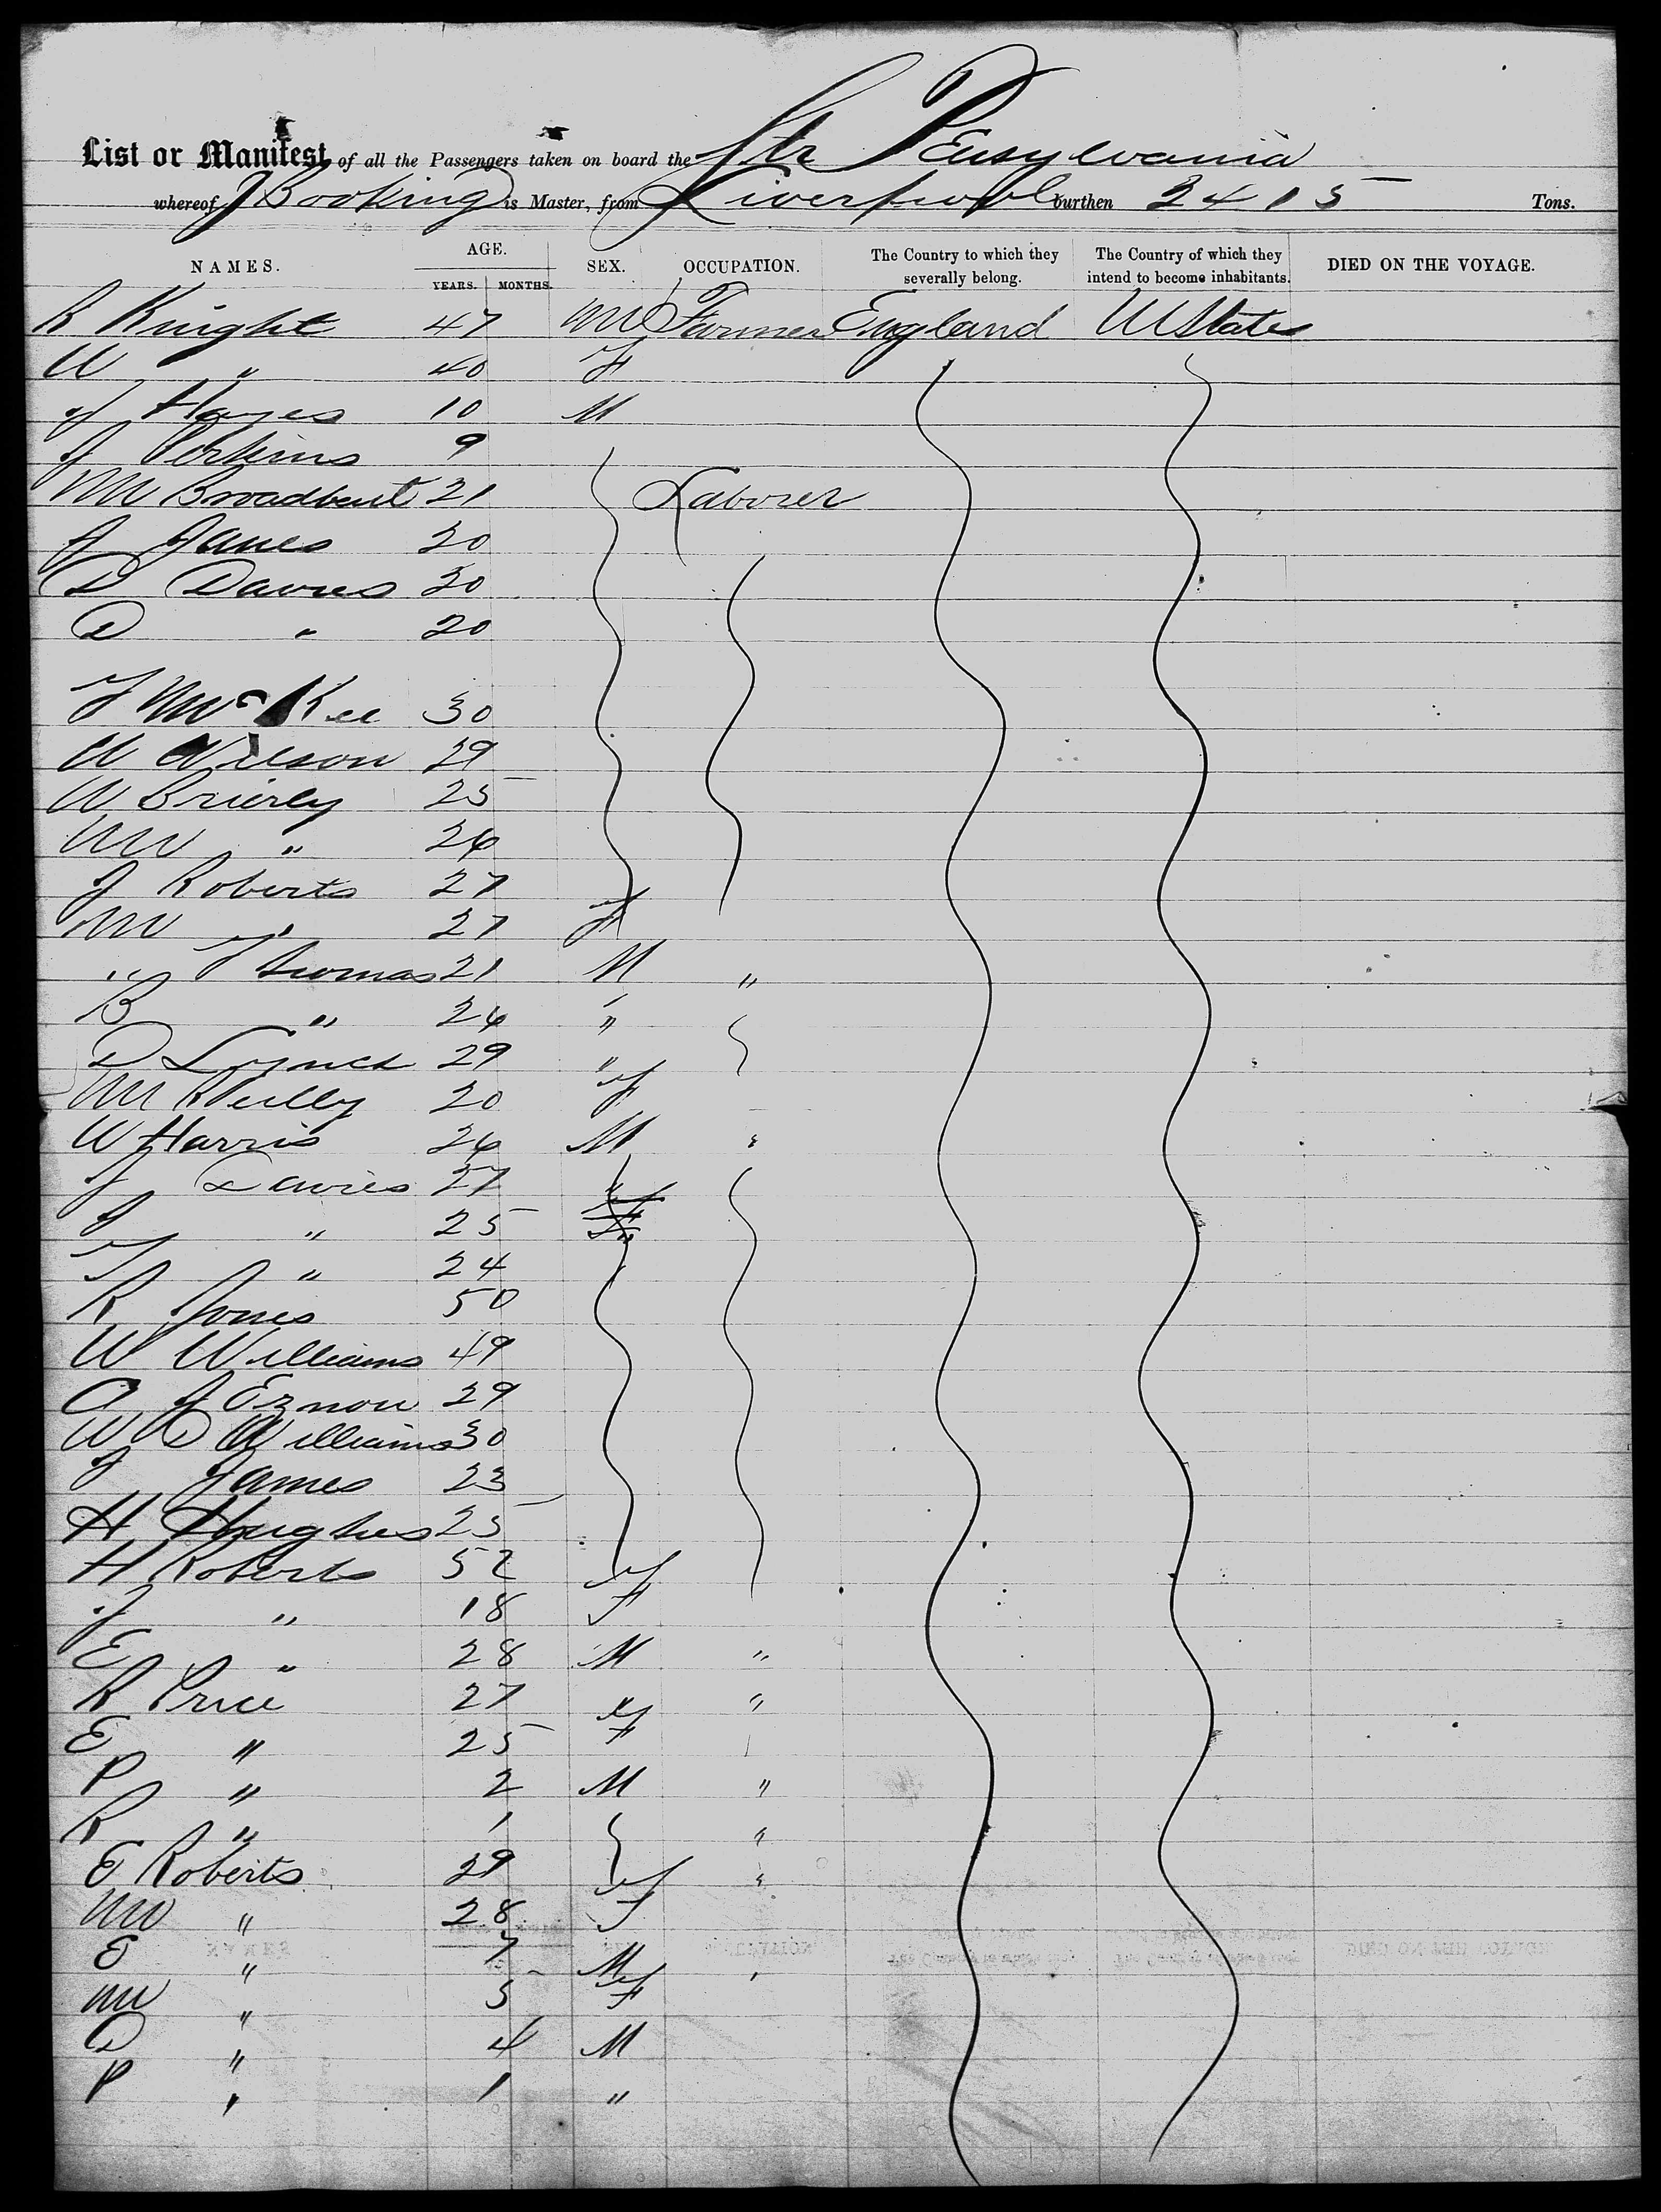 List or Manifest of all the Passengers taken on board the Str Pensylvania
whereof J Booking is Master, from Liverpool burthen 2415 Tons.
NAMES. AGE. YEARS. MONTHS. SEX. OCCUPATION. The Country to which they severally belong. The Country of which they intend to become inhabitants. DIED ON THE VOYAGE.
R Knight 47 M Farmer England U States
W " 40 F
J Hayes 10 M
J Perkins 9
M Broadbent 21 Laborer
J Janes 20
D Davies 30
D " 20
J McKee 30
W Wilson 29
W Brierly 25
M " 26
J Roberts 27
M " 27 F
" Thomas 21 M "
B " 26 "
D Lynch 29 "
M Reilly 20 F
W Harris 26 M "
J Davies 27 "
J " 25
J " 24
R Jones 50
W Williams 49
A J 29
W D Williams 30
J James 23
H Hughes 25
H Roberts 52
J " 18 F
E " 28 M "
R Price 27 " "
E " 25 F
P " 2 M "
R " 1 "
E Roberts 29 "
M " 28 F
E " 7 M "
M " 5 F
D " 4 M
P " 1 "